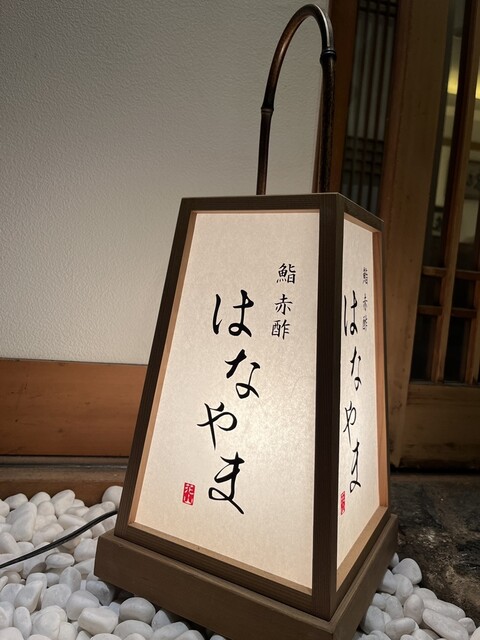 鮨 赤酢
はなやま
花山
鮨 赤酢
はなやま